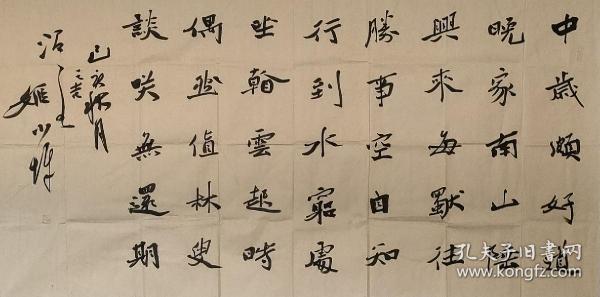 中歲頗好道
晚家南山陲
興來每獨往
勝事空自知
行到水窮處
坐看雲起時
偶然值林叟
談咲無還期
己亥秋月
孔夫子旧書网
www.kongfz.com